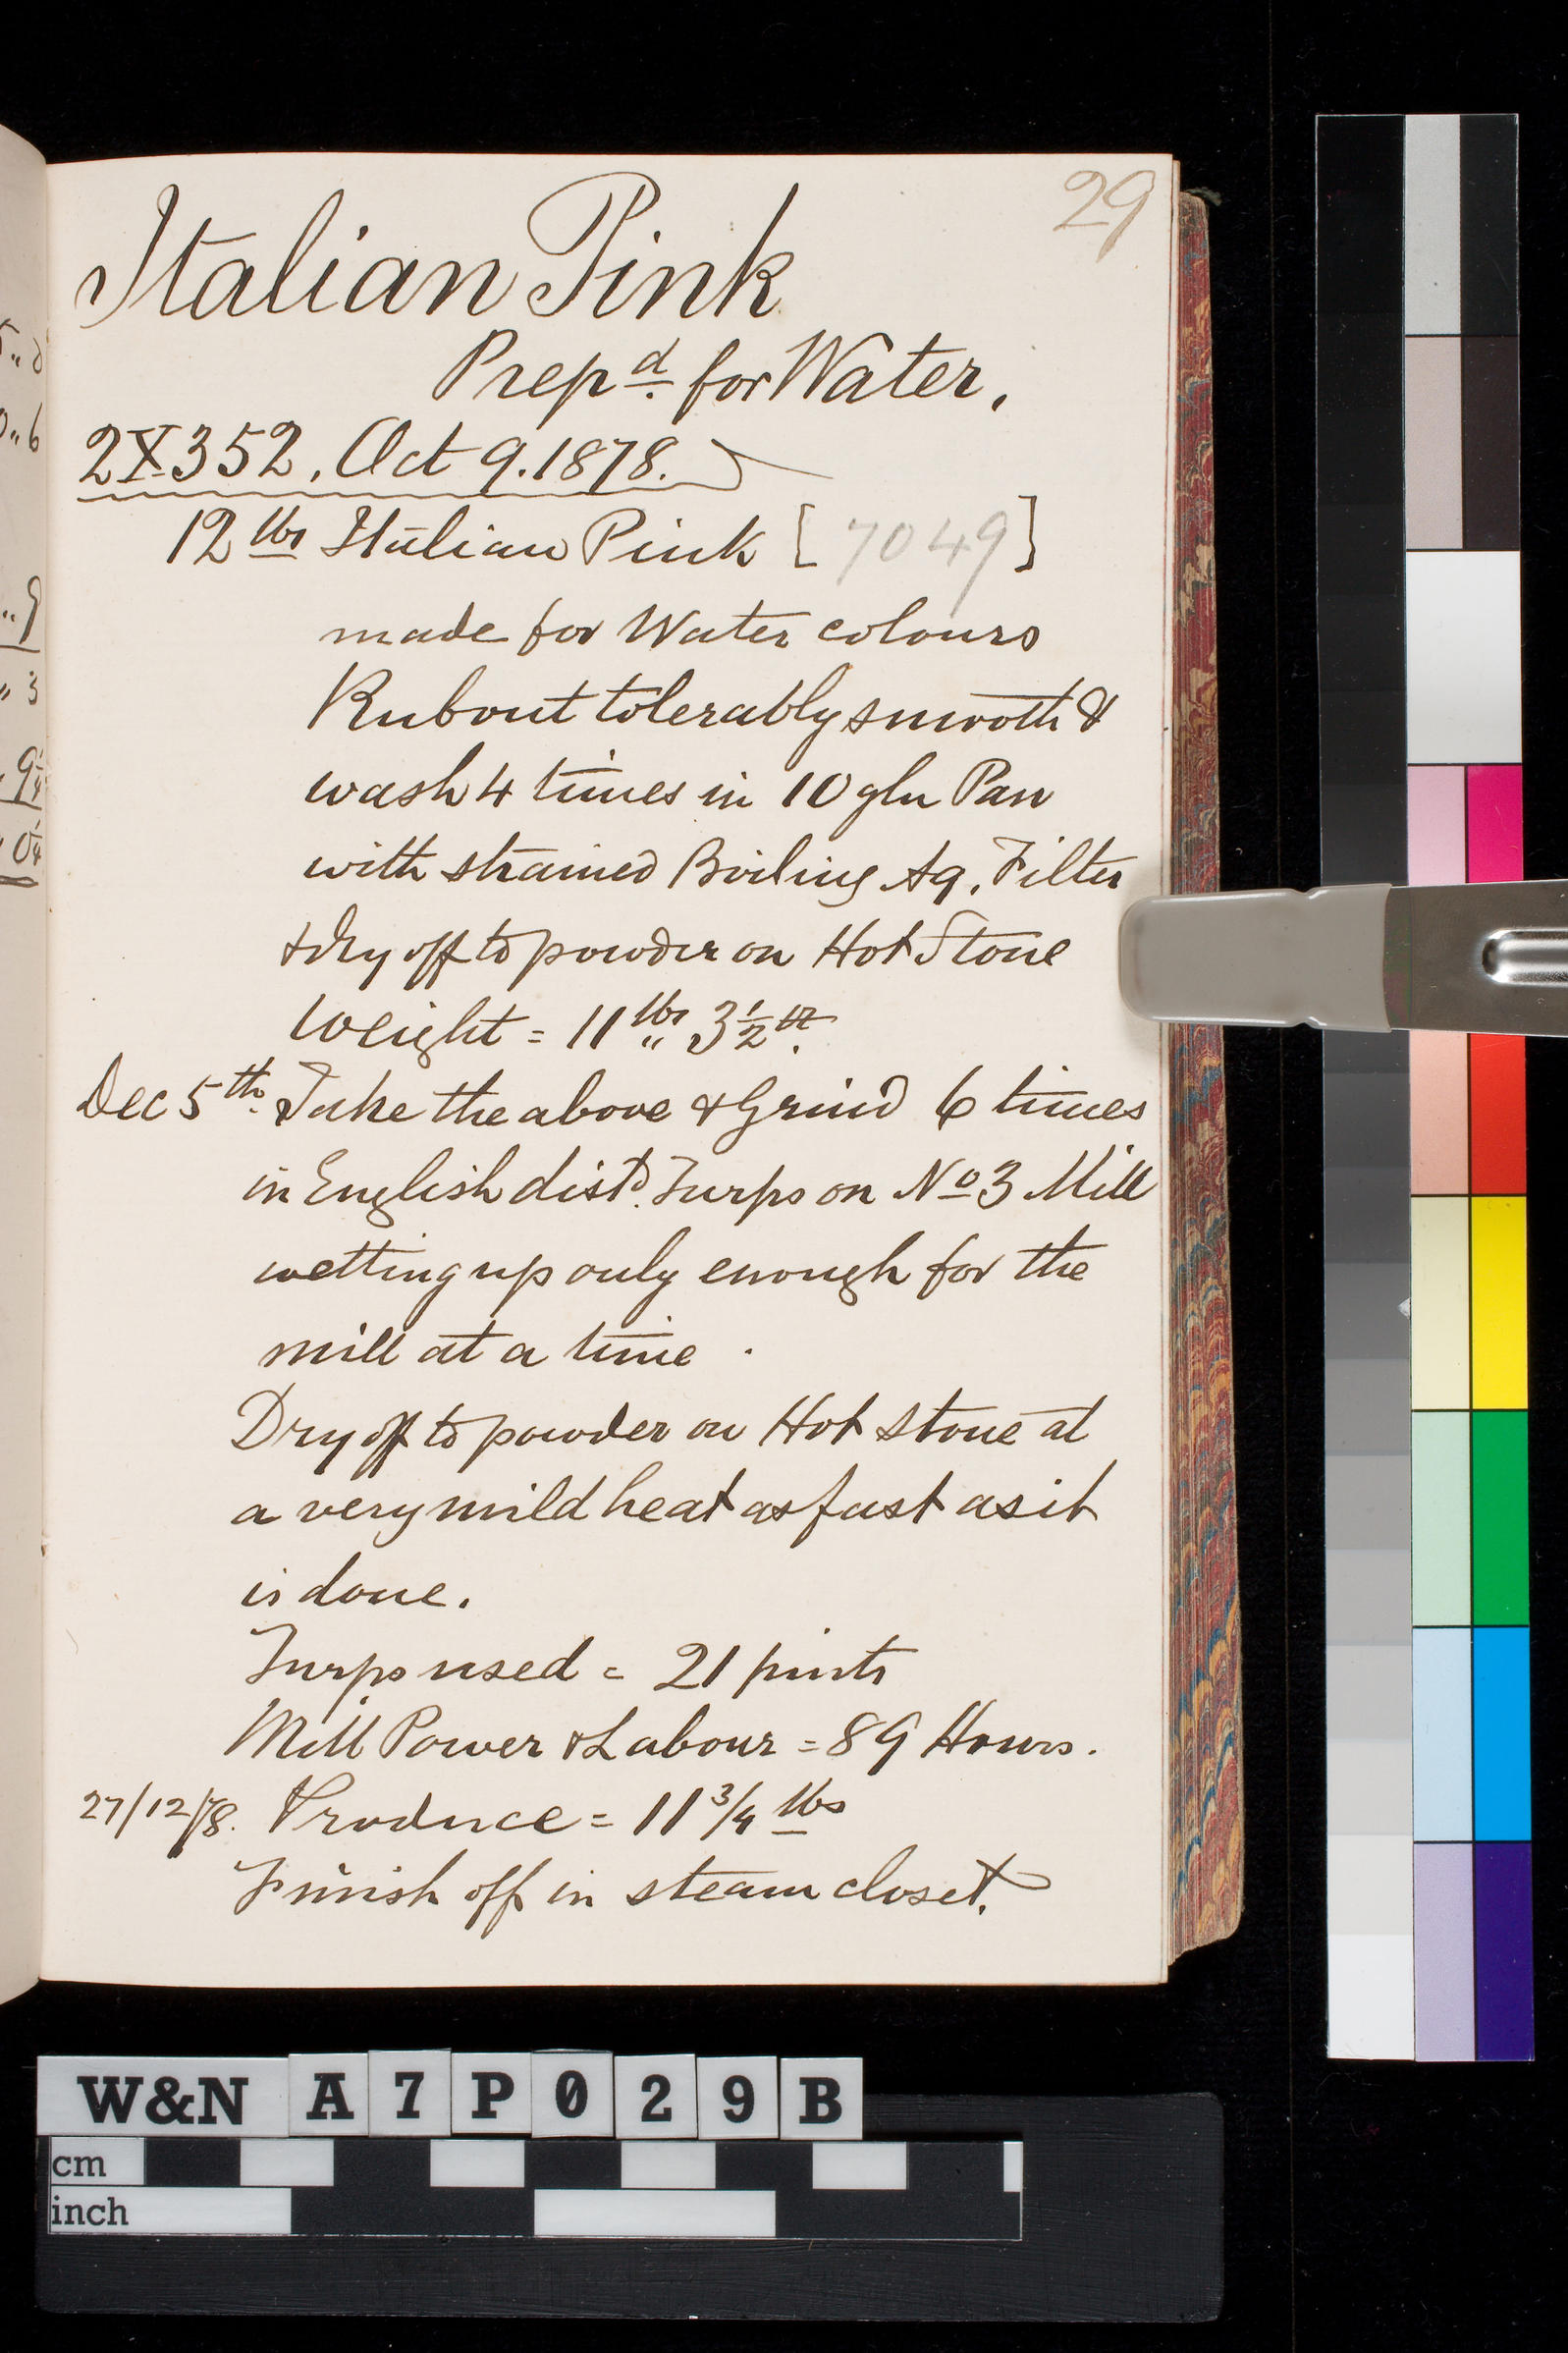 29
Italian Pink
Prep.d for Water.
2X352. Oct 9. 1878.
12 lbs Italian Pink [7049]
made for Water colours
Rub out tolerably smooth &
wash 4 times in 10 gln Pan
with strained Boiling Aq. Filter
& dry off to powder on Hot Stone
Weight = 11 lbs 3 1/2
Dec 5th. Take the above & Grind 6 times
in English distd. Turps on No 3 Mill
wetting up only enough for the
mill at a time.
Dry off to powder on Hot stone at
a very mild heat as fast as it
is done.
Turps used = 21 pints
Mill Power & Labour = 89 Hours.
27/12/78. Produce = 11 3/4 lbs
Finish off in steam closet.
W&N A7P029B
cm
inch